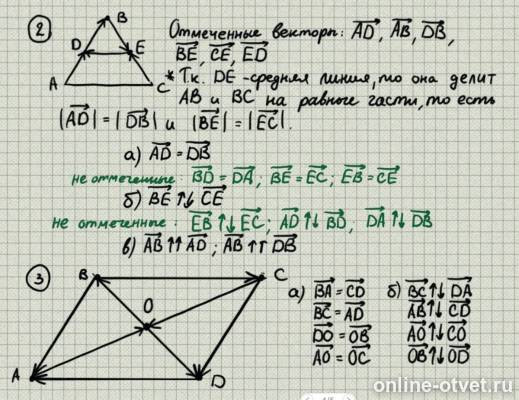 2 Отмеченные векторы: AD, AB, DB,
BE, CE, ED
* Т.к. DE - средняя линия, то она делит
AB и BC на равные части, то есть
|AD| = |DB| и |BE| = |EC|.
а) AD = DB
не отмеченные: BD = DA; BE = EC; EB = CE
б) BE ↑↓ CE
не отмеченные: EB ↑↓ EC; AD ↑↓ BD; DA ↑↓ DB
в) AB ↑↑ AD; AB ↑↑ DB
B
D E
A C
3
B C
O
A D
а) BA = CD б) BC ↑↓ DA
BC = AD AB ↑↓ CD
DO = OB AO ↑↓ CO
AO = OC OB ↑↓ OD
online-otvet.ru